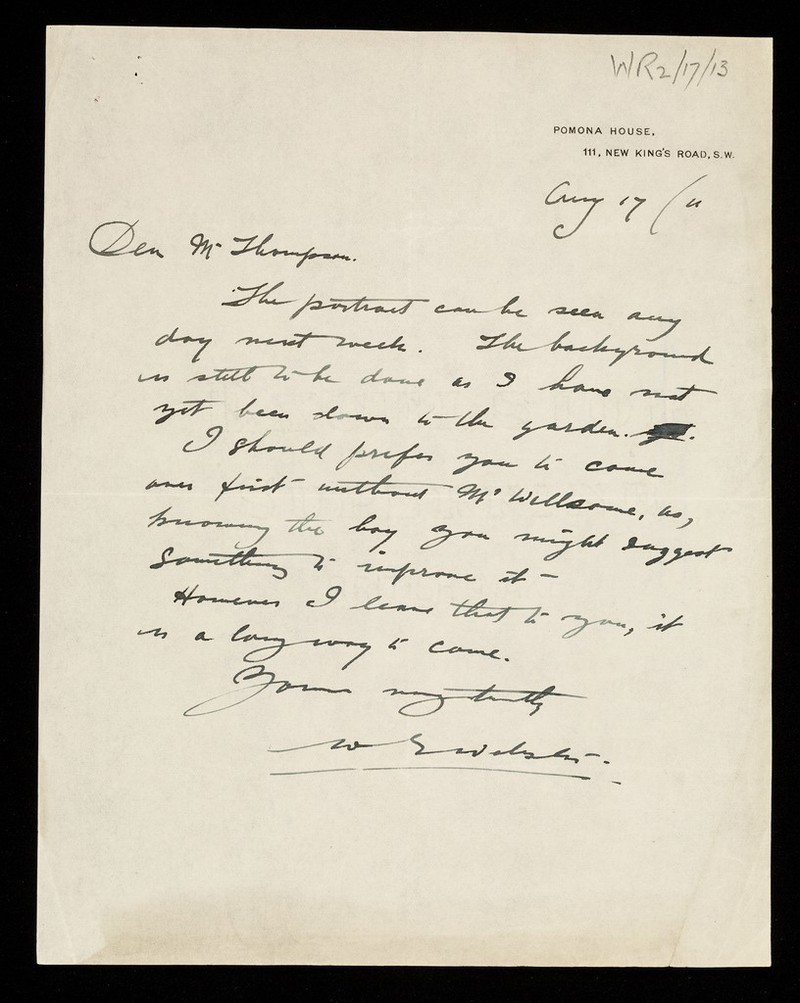 WR2/17/13
POMONA HOUSE,
111, NEW KING'S ROAD, S.W.
Aug 17 / 11
Dear Mr Thompson.
The portrait can be seen any
day next week. The background
is still to be done as I have not
yet been down to the garden.
I should prefer you to come
over first without Mr Wellsome, as,
knowing the boy you might suggest
something to improve it –
However I leave that to you, it
is a long way to come.
Yours very truly
W E Webster.